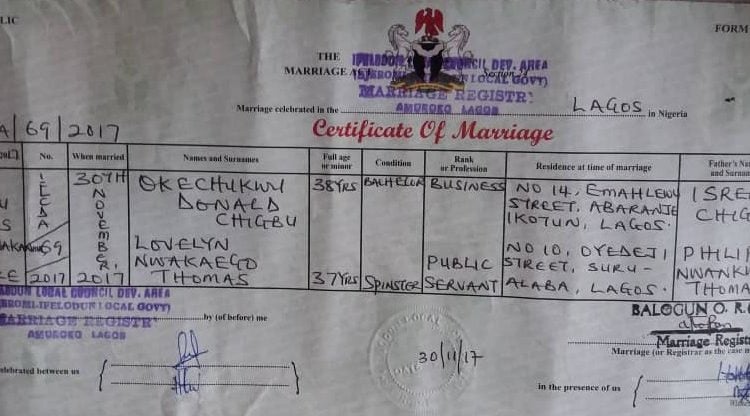 LIC
FORM
THE
MARRIAGE
Section 24
COUNCIL DEV. AREA
LOCAL GOVT)
MARRIAGE REGISTR
AMUKOKO LAGOS
Marriage celebrated in the LAGOS in Nigeria
A/69/2017
Certificate Of Marriage
No.
When married
Names and Surnames
Full age or minor
Condition
Rank or Profession
Residence at time of marriage
Father's Na
and Surna
30TH NOVEMBER, 2017
OKECHUKWU DONALD CHIGBU
38YRS
BACHELOR
BUSINESS
STREET, ABARANJE
IKOTUN, LAGOS.
ISRE
CHIG
69
2017
LOVELYN NWAKAEGO THOMAS
37YRS
SPINSTER
PUBLIC SERVANT
NO 10, OYEDEJI
STREET, SURU-
ALABA, LAGOS.
PHILI
NWANK
THOMA
LOCAL COUNCIL DEV. AREA
IFELODUN LOCAL GOVT)
MARRIAGE REGISTR
AMUKOKO LAGOS
by (of before) me
BALOGUN O. R.
Marriage Regist
Marriage (or Registrar as the case m
elebrated between us
30/11/17
in the presence of us